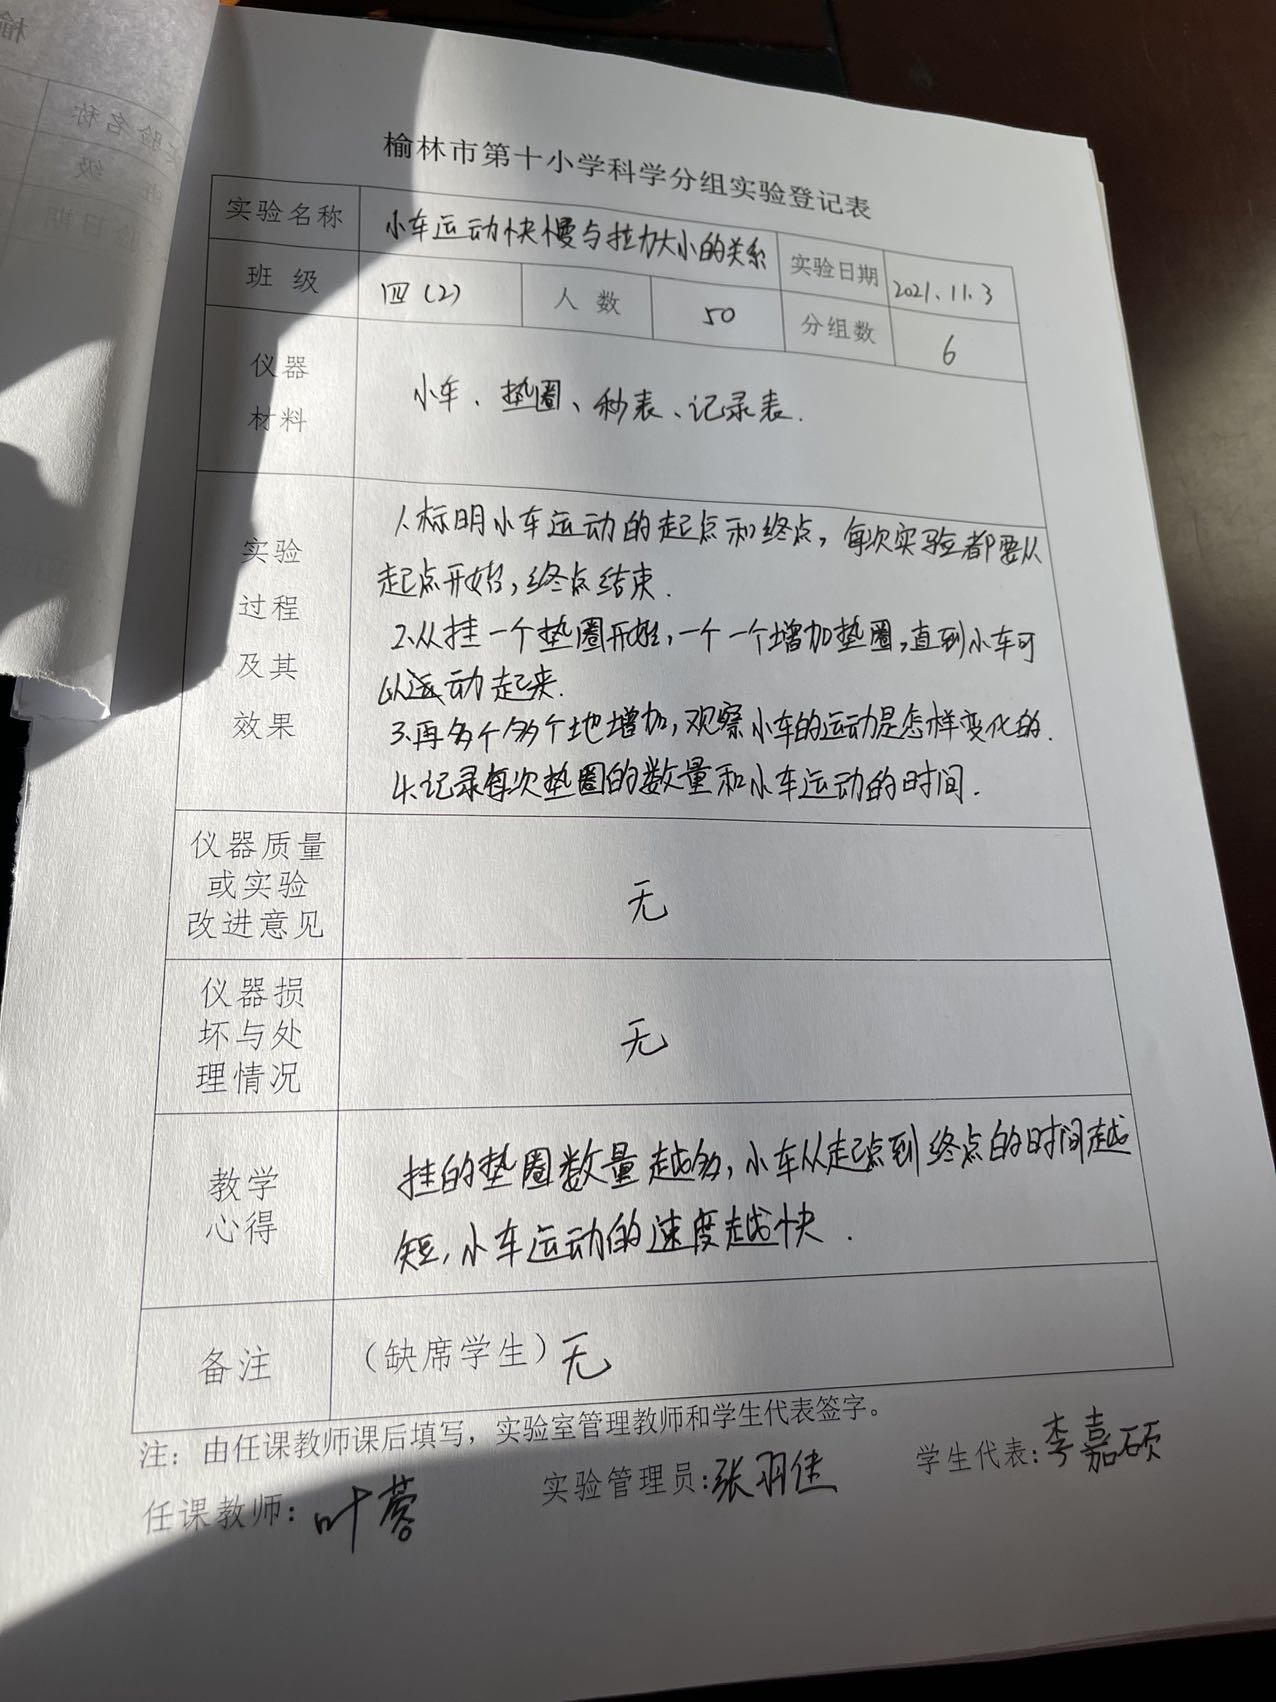 榆林市第十小学科学分组实验登记表
实验名称 小车运动快慢与拉力大小的关系 实验日期 2021.11.3
班级 四(2) 人数 50 分组数 6
仪器 材料 小车、垫圈、秒表、记录表.
实验 过程 及其 效果
1.标明小车运动的起点和终点,每次实验都要从
起点开始,终点结束.
2.从挂一个垫圈开始,一个一个增加垫圈,直到小车可
以运动起来.
3.再多个多个地增加,观察小车的运动是怎样变化的.
4.记录每次垫圈的数量和小车运动的时间.
仪器质量
或实验 无
改进意见
仪器损
坏与处 无
理情况
教学 心得
挂的垫圈数量越多,小车从起点到终点的时间越
短,小车运动的速度越快.
备注 (缺席学生)无
注：由任课教师课后填写，实验室管理教师和学生代表签字。
任课教师：叶蓉 实验管理员:张羽佳 学生代表:李嘉硕
实验名称
级
日期